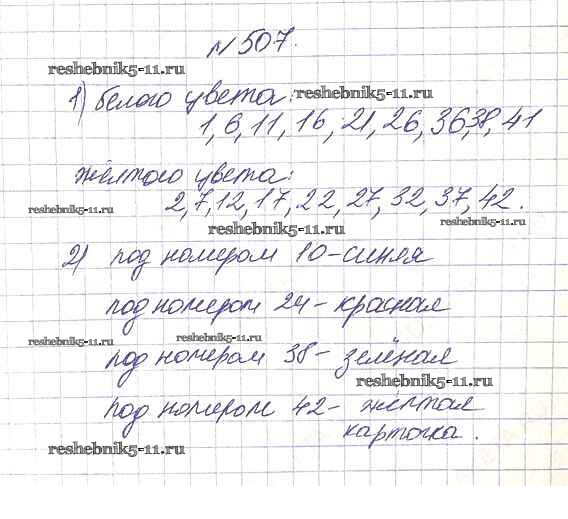 №507.
reshebnik5-11.ru
1) белого цвета:
1, 6, 11, 16, 21, 26, 36, 38, 41
жёлтого цвета:
2, 7, 12, 17, 22, 27, 32, 37, 42.
reshebnik5-11.ru
reshebnik5-11.ru
reshebnik5-11.ru
2) под номером 10-синяя
под номером 24-красная
reshebnik5-11.ru
reshebnik5-11.ru
под номером 38-зелёная
reshebnik5-11.ru
под номером 42-жёлтая
карточка.
reshebnik5-11.ru